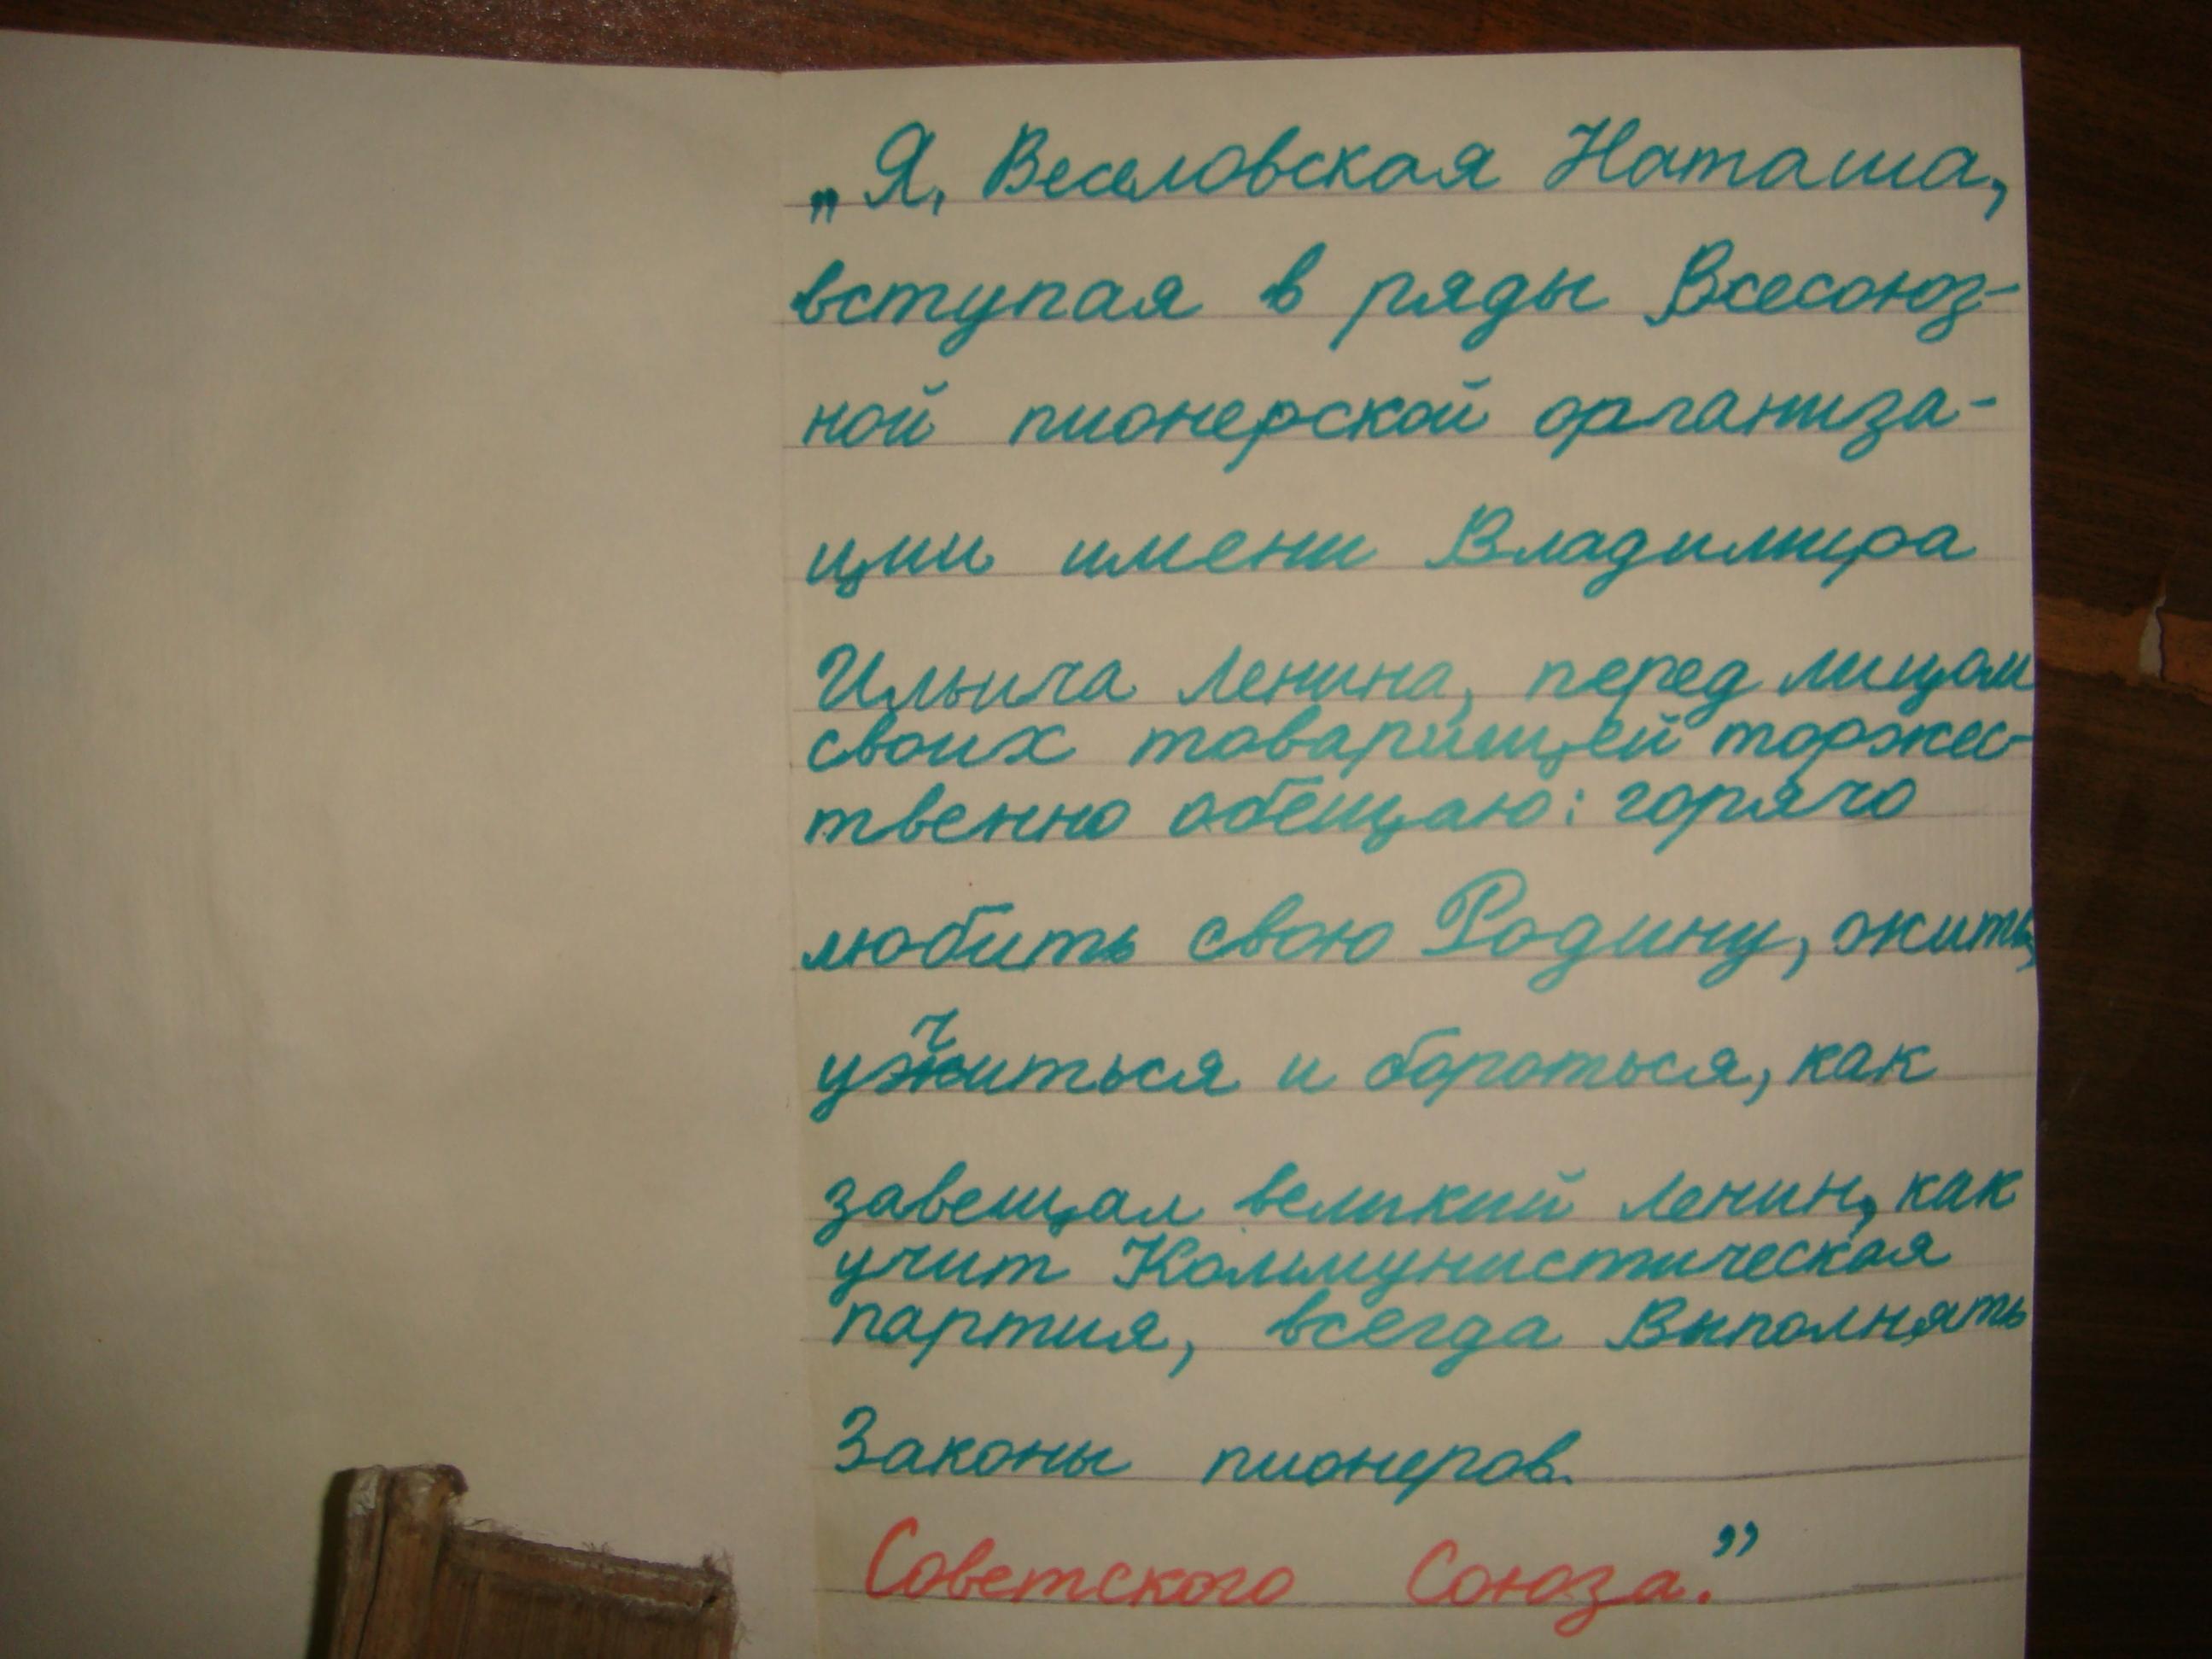 „Я, Веселовская Наташа,
вступая в ряды Всесоюз-
ной пионерской организа-
ции имени Владимира
Ильича Ленина, перед лицом
своих товарищей торжес-
твенно обещаю: горячо
любить свою Родину, жить,
учиться и бороться, как
завещал великий Ленин, как
учит Коммунистическая
партия, всегда Выполнять
Законы пионеров.
Советского Союза.”